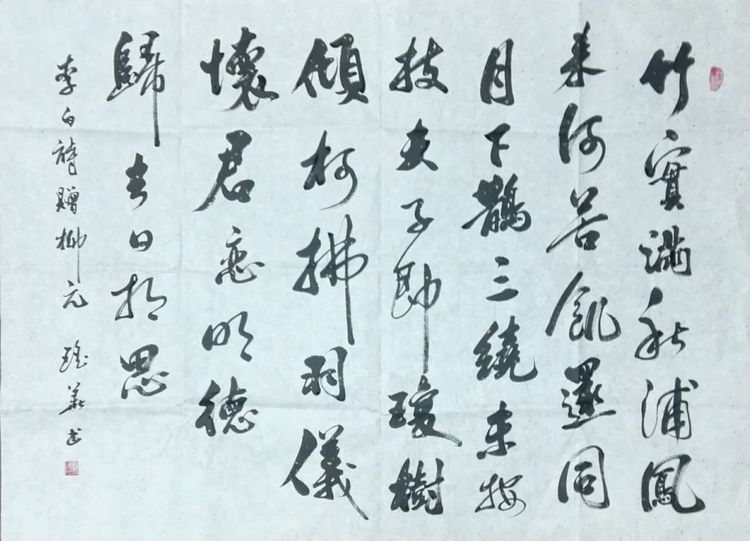 竹實滿秋浦鳳
来何苦飢還同
月下鵲三繞未按
技夫子即瓊樹
傾柯拂羽儀
懷君恋明德
歸去日相思
李白詩贈柳元